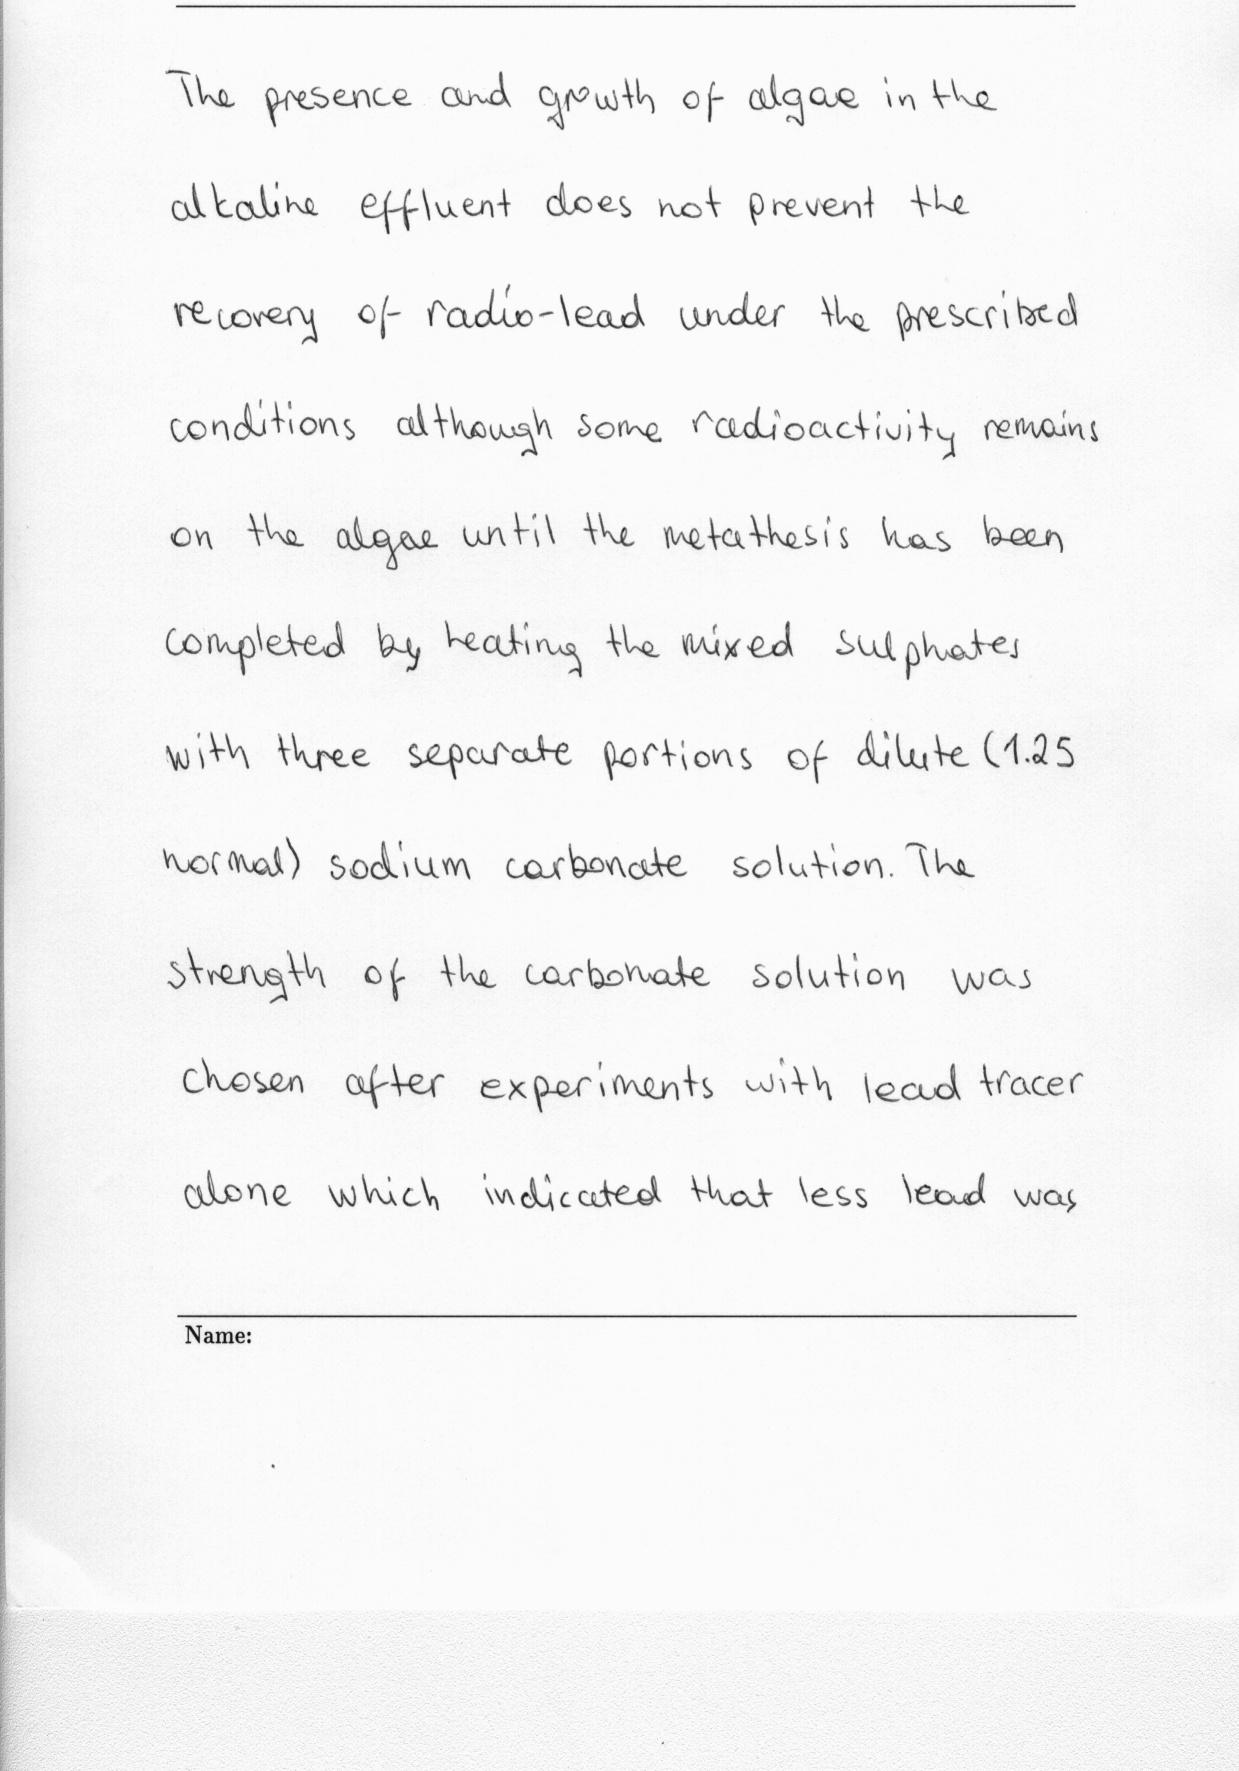 The presence and growth of algae in the
alkaline effluent does not prevent the
recovery of radio-lead under the prescribed
conditions although some radioactivity remains
on the algae until the metathesis has been
completed by heating the mixed sulphates
with three separate portions of dilute (1.25
normal) sodium carbonate solution. The
strength of the carbonate solution was
chosen after experiments with lead tracer
alone which indicated that less lead was
Name: